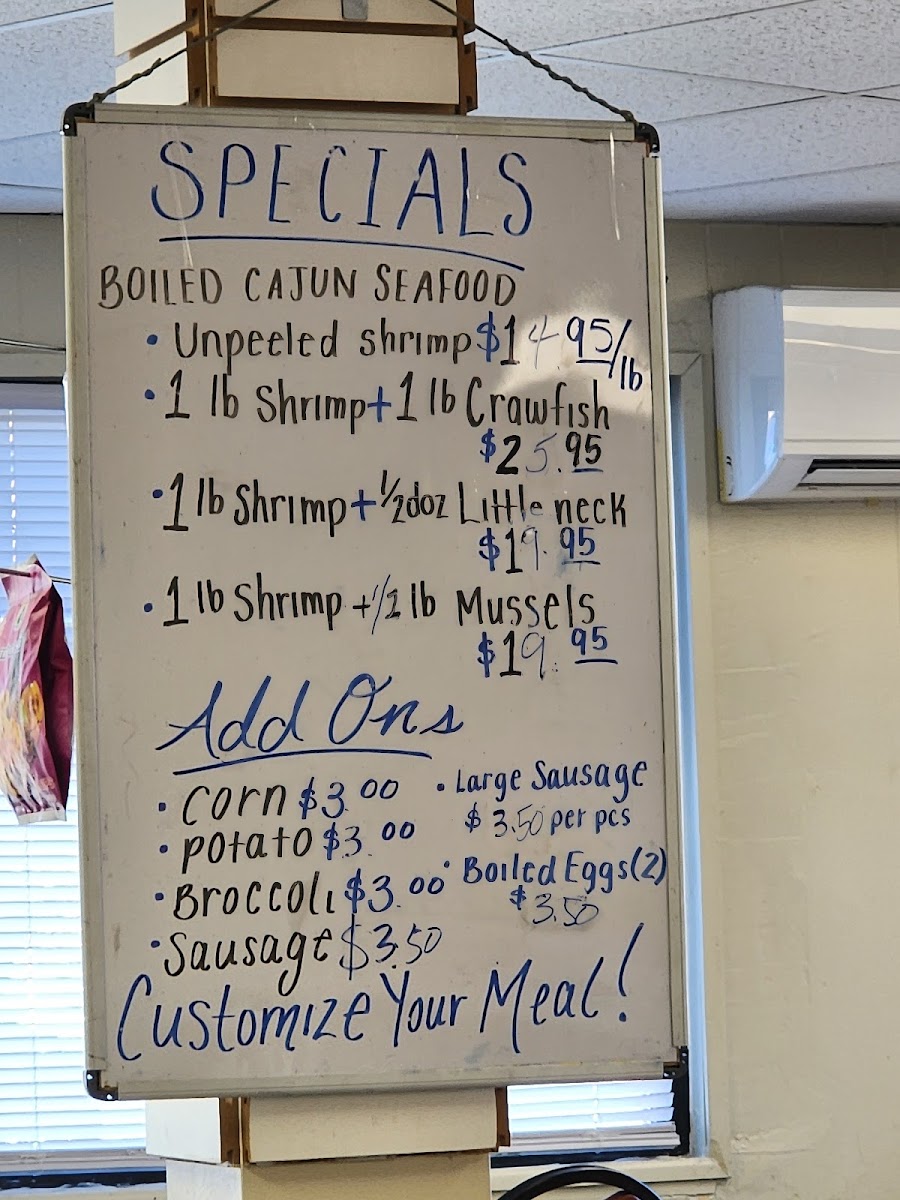 SPECIALS
BOILED CAJUN SEAFOOD
• Unpeeled shrimp $14.95/lb
• 1 lb Shrimp + 1 lb Crawfish
$25.95
• 1 lb Shrimp + 1/2 doz Little neck
$19.95
• 1 lb Shrimp + 1/2 lb Mussels
$19.95
Add Ons
• Corn $3.00
• Potato $3.00
• Broccoli $3.00
• Sausage $3.50
• Large Sausage
$ 3.50 per pcs
• Boiled Eggs (2)
$3.50
Customize Your Meal!